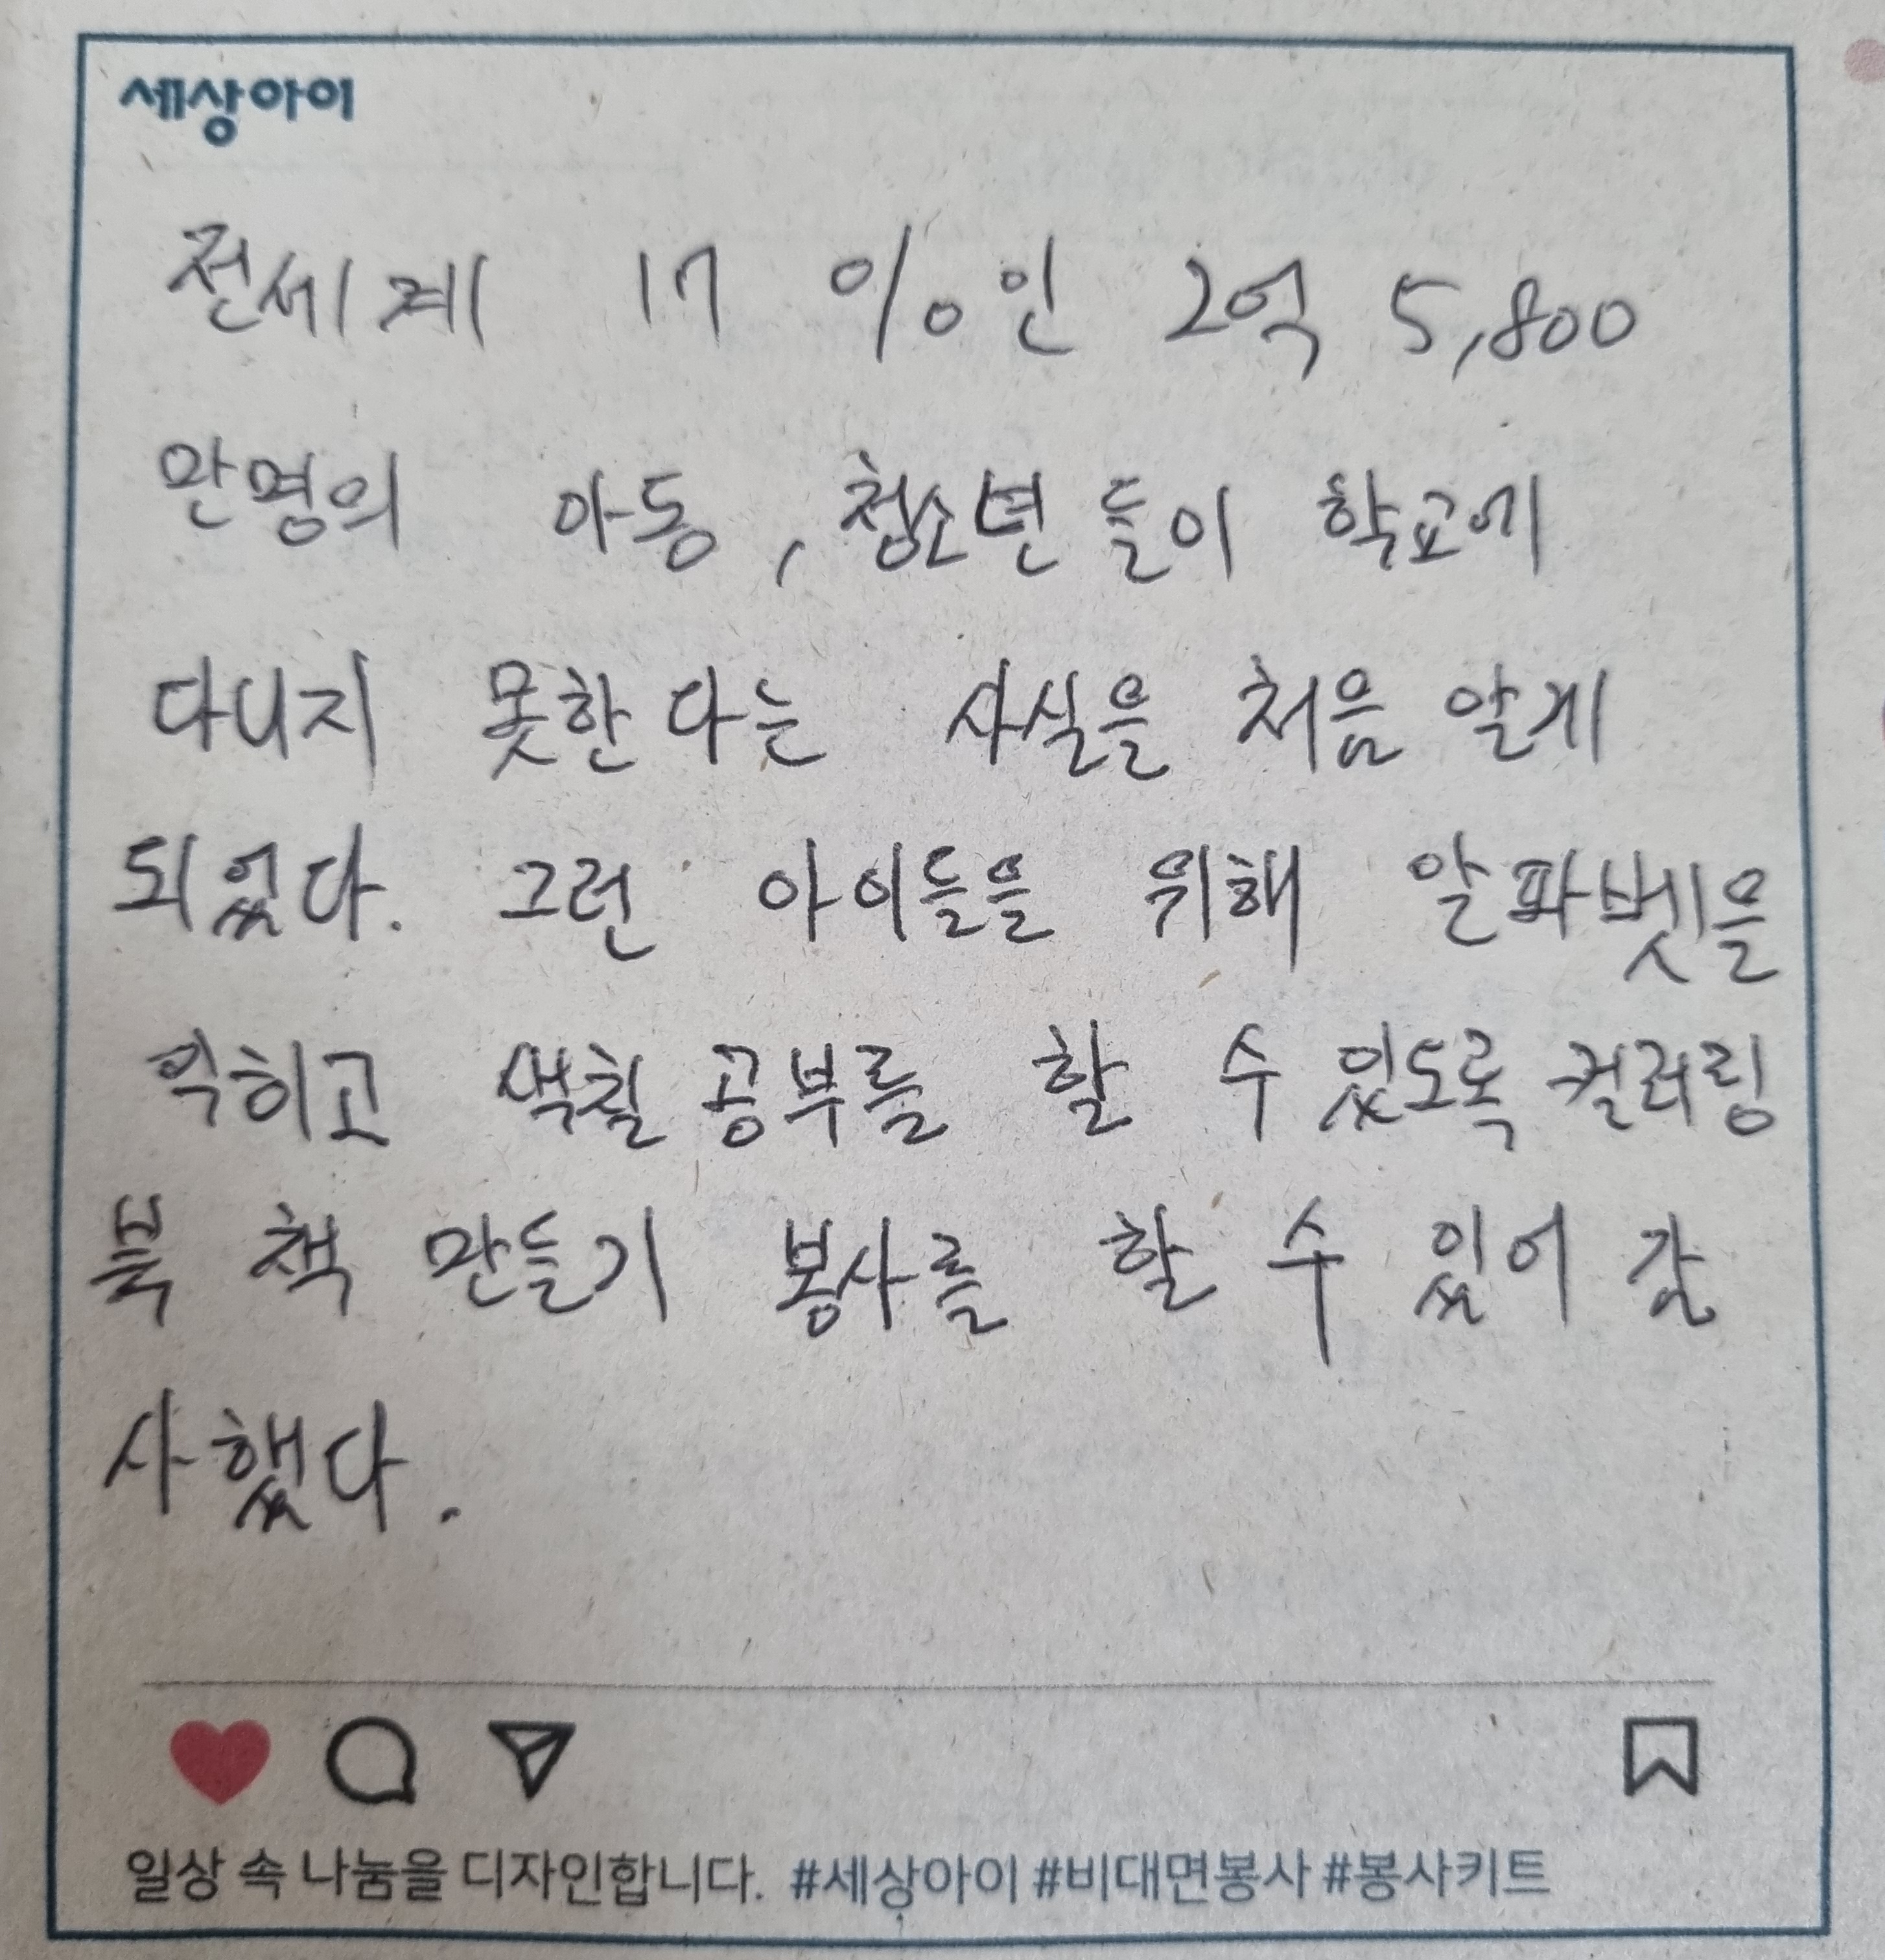 세상아이
전세계 17 %인 2억 5,800
만명의 아동, 청소년들이 학교에
다니지 못한다는 사실을 처음 알게
되었다. 그런 아이들을 위해 알파벳을
익히고 색칠공부를 할 수 있도록 컬러링
북 책 만들기 봉사를 할 수 있어 감
사했다.
일상 속 나눔을 디자인합니다. #세상아이 #비대면봉사 #봉사키트